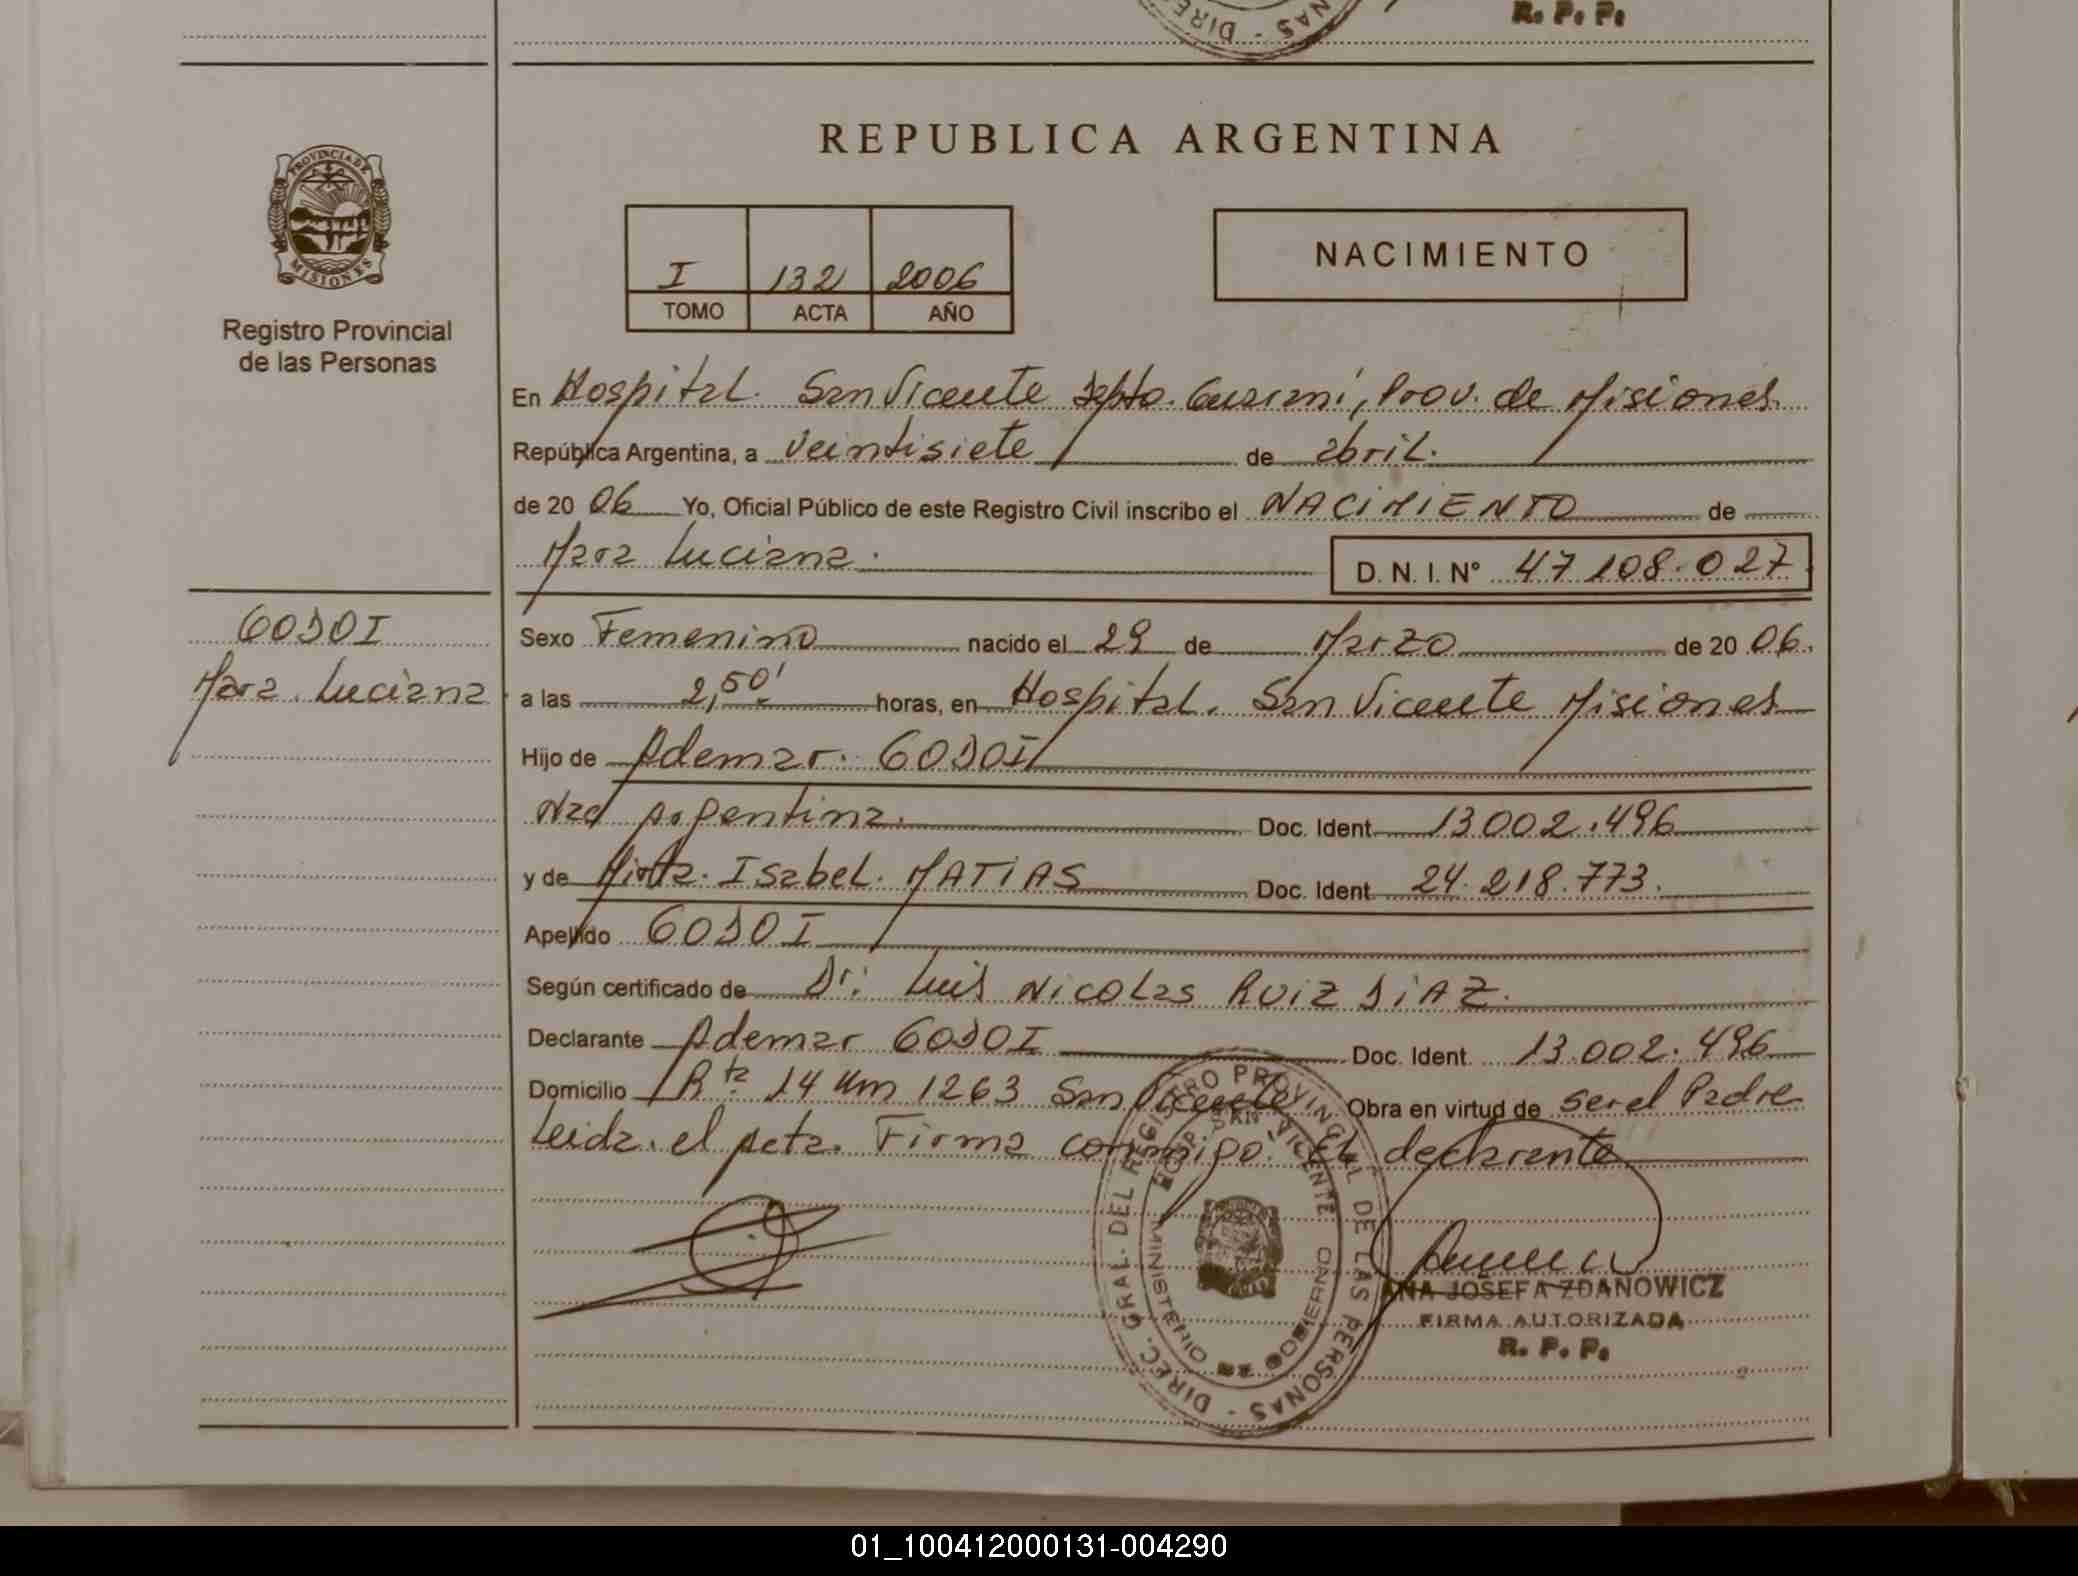 R. P. P.
REPUBLICA ARGENTINA
PROVINCIA DE
MISIONES
Registro Provincial
de las Personas
I 132 2006
TOMO ACTA AÑO
NACIMIENTO
En Hospital. San Vicente Depto. Guaraní, Prov. de Misiones
República Argentina, a veintisiete de abril.
de 2006 Yo, Oficial Público de este Registro Civil inscribo el NACIMIENTO de
Mara Luciana. D. N. I. N° 47 108.027
GODOI
Mara Luciana
Sexo Femenino nacido el 29 de Marzo de 2006.
a las 2,50' horas, en Hospital. San Vicente Misiones
Hijo de Ademar. GODOI
Nac Argentina. Doc. Ident. 13002.496
y de Mirta. Isabel. MATIAS Doc. Ident. 24.218.773.
Apellido GODOI
Según certificado de Dr. Luis Nicolas RUIZ DIAZ.
Declarante Ademar GODOI Doc. Ident. 13.002.496
Domicilio Rta 14 Km 1263 San Vicente Obra en virtud de ser el Padre
Leida. el Acta. Firma conmigo: EL declarante
DIREC. GRAL. DEL REGISTRO PROVINCIAL DE LAS PERSONAS -
HOSP. SAN VICENTE
MINISTERIO DE GOBIERNO
ANA JOSEFA ZDANOWICZ
FIRMA AUTORIZADA
R. P. P.
01_100412000131-004290